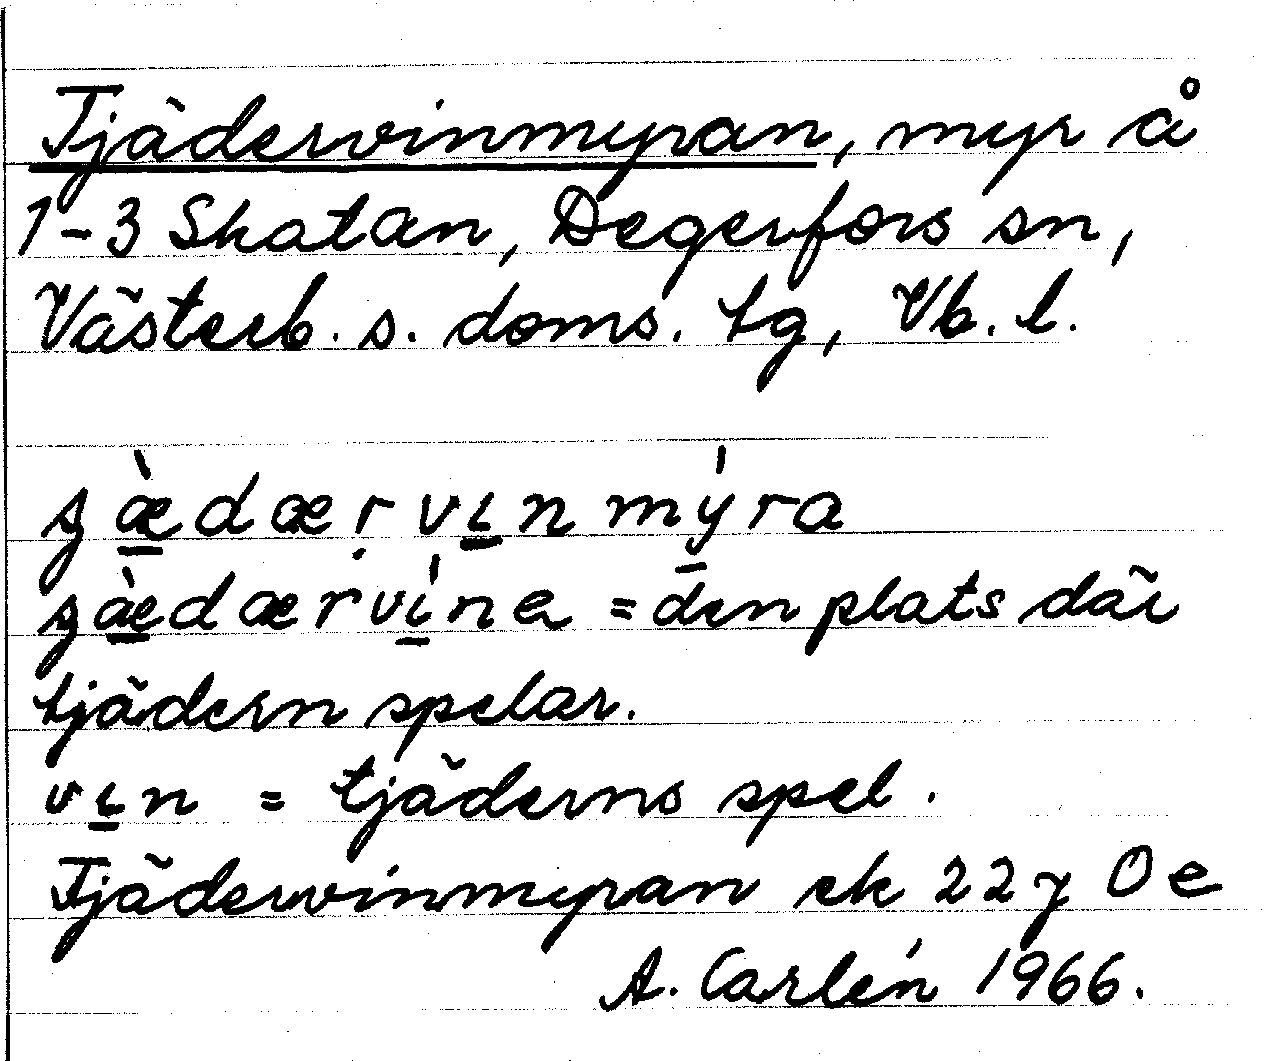 Tjädervinmyran, myr å
1-3 Skatan, Degerfors sn,
Västerb. s. doms. tg, Vb. l.
ʂæ̀dærvɩnmýra
ʂæ̀dærvɩ́na = den plats där
tjädern spelar.
vɩn = tjäderns spel.
Tjädervinmyran ek 22 7 Oe
A. Carlén 1966.